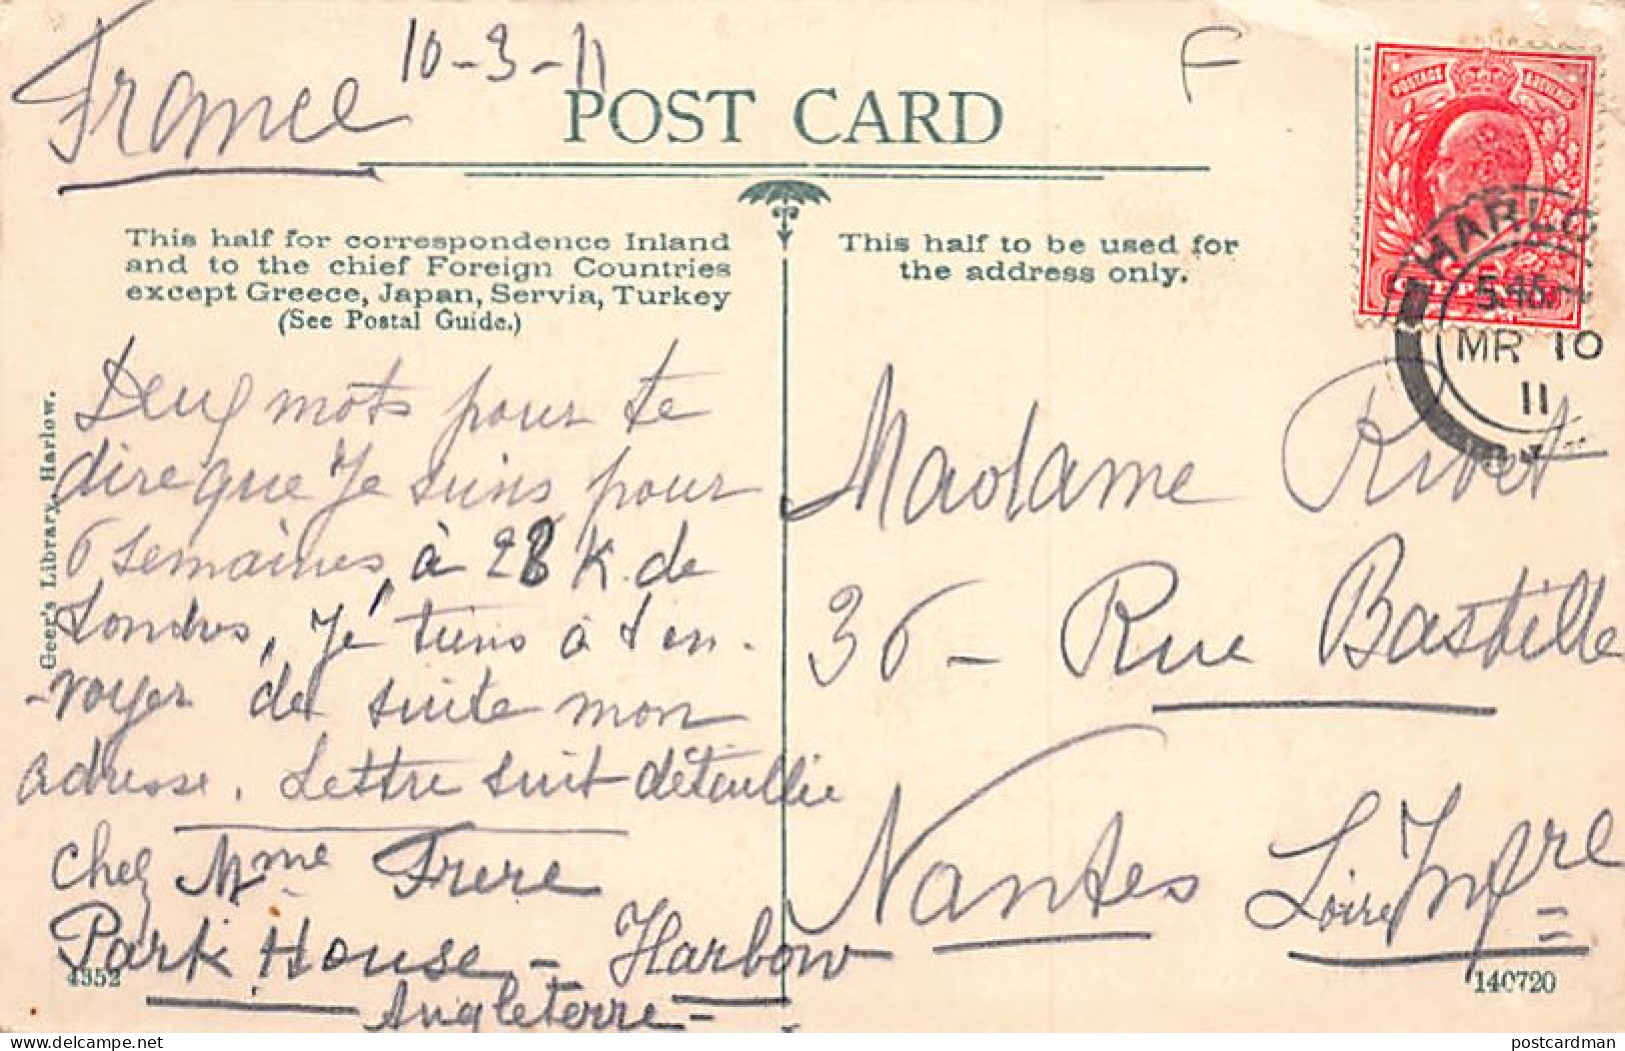 France
10-3-11
F
POST CARD
POSTAGE REVENUE
ONE PENNY
HARLO
5.45
MR 10
11
This half for correspondence Inland
and to the chief Foreign Countries
except Greece, Japan, Servia, Turkey
(See Postal Guide.)
This half to be used for
the address only.
Geer's Library, Harlow.
Deux mots pour te
dire que Je suis pour
6 semaines, à 28 K. de
Londres, Je tiens à t'en-
-voyer de suite mon
adresse. Lettre suit détaillée
chez Mme Frere
Park House - Harlow
Angleterre -
Madame Rivet
36 - Rue Bastille
Nantes Loire Infre
4352
140720
postcardman